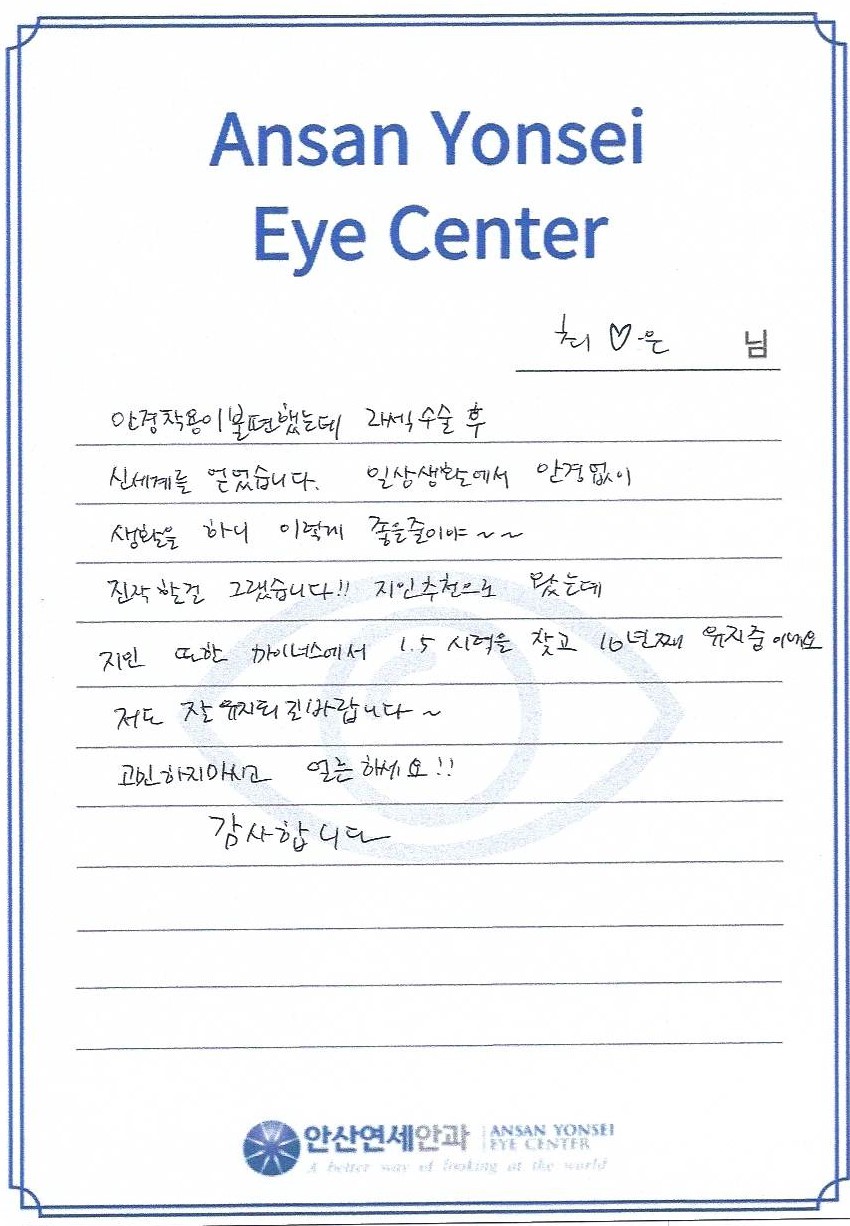 Ansan Yonsei
Eye Center
최 ♡은 님
안경착용이 불편했는데 라섹수술 후
신세계를 얻었습니다. 일상생활에서 안경없이
생활을 하니 이렇게 좋을줄이야~~
진작 할걸 그랬습니다!! 지인추천으로 왔는데
지인 또한 에서 1.5 시력을 찾고 10년째 유지중이네요
저도 잘 유지되길바랍니다~
고민하지마시고 얼른하세요!!
감사합니다
안산연세안과 ANSAN YONSEI
EYE CENTER
A better way of looking at the world